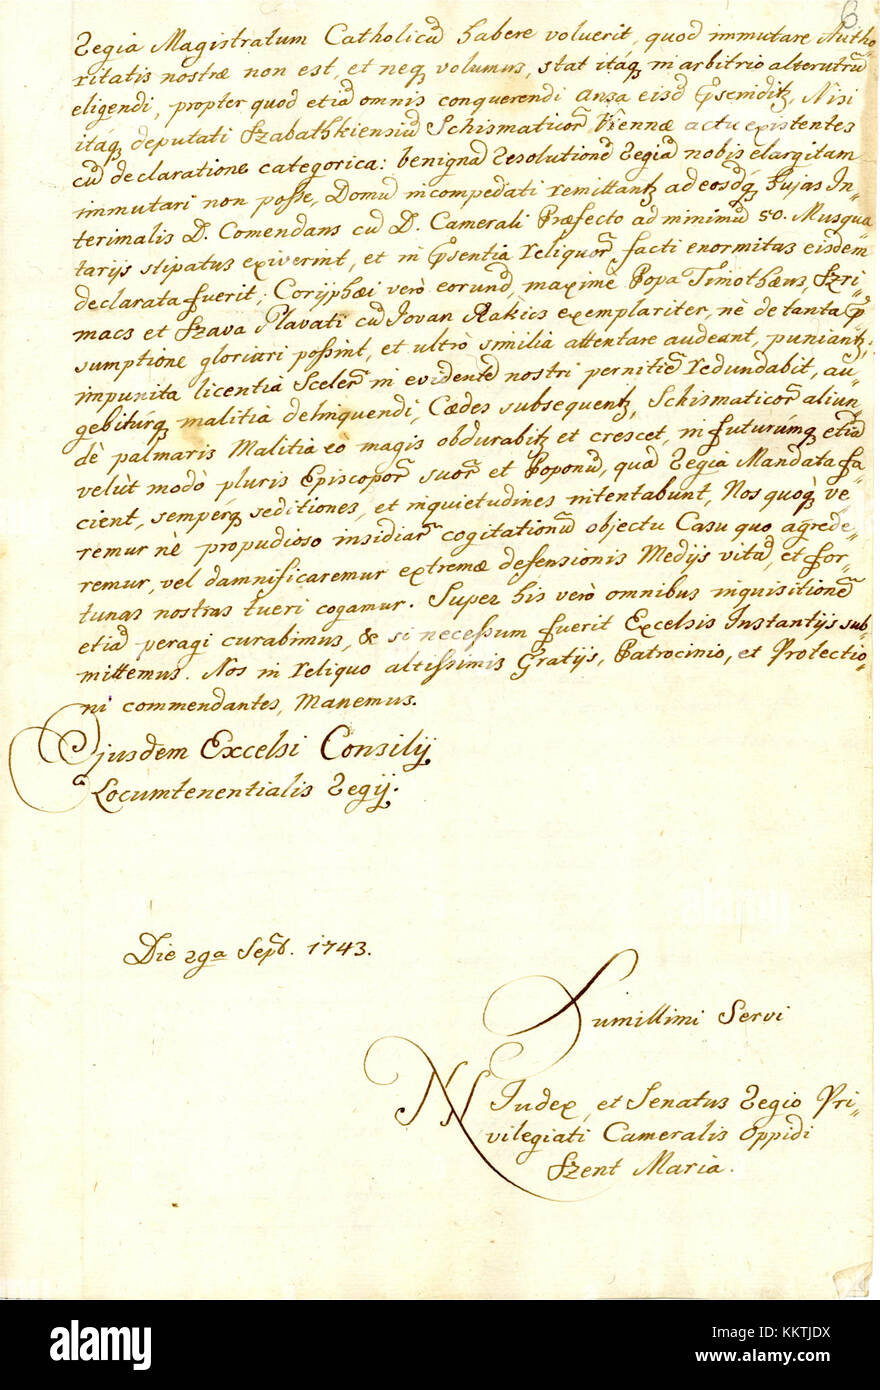 6.
Regia Magistratum Catholicū habere voluerit, quod immutare Autho-
ritatis nostræ non est, et neq, volumus, stat itáq, in arbitrio alterutrū
eligendi, propter quod etiā omnis conquerendi ansa eisd
itáq, deputati Szabathkiensiū Schismaticor Viennæ actu existentes Nisi
cū declaratione categorica: benignā Resolutionē Regiā nobis elargitam
immutari non posse, Domū incompedati remittant ad eosdq, hujas In-
terimalis D. Comendans cū D. Camerali Præfecto ad minimū 50. Musqua
tarijs stipatus exiverint, et in Psentia reliquor facti enormitas eisdem
declarata fuerit; Coryphæi verò eorund, maximè Popa Timothæus, Szri-
macs et Szava Plavati cū Jovan Rakics exemplariter, nè de tanta P
sumptione gloriari possint, et ultrò similia attentare audeant, puniant,
impunita licentia Sceler in evidentē nostri perniciē redundabit, au-
gebitúrq, malitia delinquendi, Cædes subsequent, Schismaticor aliun
dè palmaris Malitia eò magis obdurabit et crescet, in futurúmq, etiā
velùt modò pluris Episcopor suor et Poponū, quā Regia Mandata fa-
cient, sempérq, seditiones, et inquietudines intentabunt, Nos quoq, ve-
remur nè propudioso insidiar cogitationū objectu Casu quo agrede-
remur, vel damnificaremur extremæ defensionis Medijs vitā, et for-
tunas nostras tueri cogamur. Super his verò omnibus inquisitionē
etiā peragi curabimus, & si necessum fuerit Excelsis Instantijs sub-
mittemus. Nos in reliquo altissimis Gratijs, Patrocinio, et Protectio-
ni commendantes, Manemus.
Ejusdem Excelsi Consilij
Locumtenentialis Regij.
Die 29a Septb. 1743.
Humillimi Servi
NN Judex, et Senatus Regio Pri-
vilegiati Cameralis Oppidi
Szent Maria.
alamy
Image ID: KKTJDX
www.alamy.com